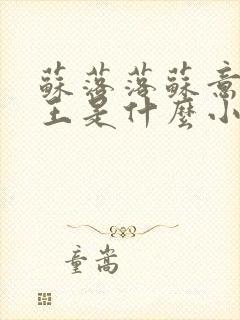 蘇落落蘇意
王是什麼小
童嵩